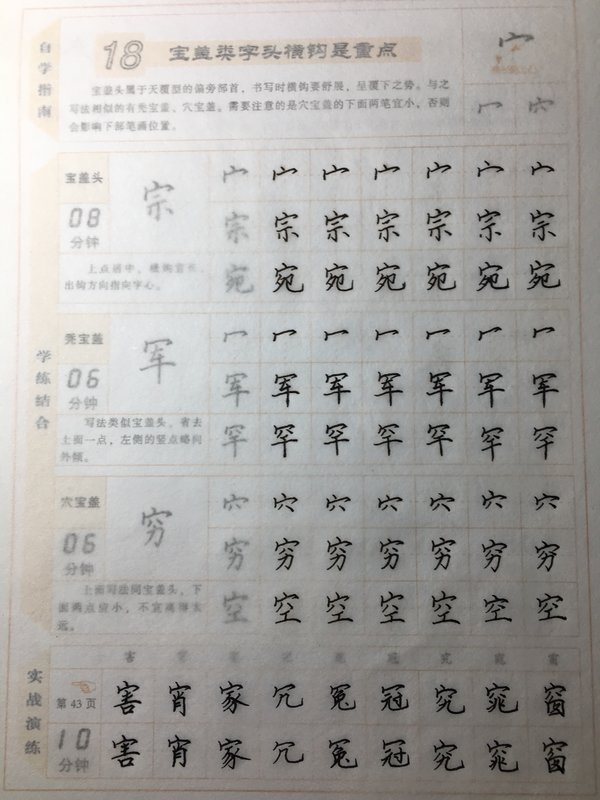 自学指南
18 宝盖类字头横钩是重点
宝盖头属于天覆型的偏旁部首，书写时横钩要舒展，呈覆下之势。与之
写法相似的有秃宝盖、穴宝盖。需要注意的是穴宝盖的下面两笔宜小，否则
会影响下部笔画位置。
宀
冖 穴
学练结合
宝盖头
08
分钟
宗
上点居中，横钩宜长，
出钩方向指向字心。
宀 宀 宀 宀 宀 宀 宀
宗 宗 宗 宗 宗 宗 宗
宛 宛 宛 宛 宛 宛 宛
秃宝盖
06
分钟
军
写法类似宝盖头，省去
上面一点，左侧的竖点略向
外倾。
冖 冖 冖 冖 冖 冖 冖
军 军 军 军 军 军 军
罕 罕 罕 罕 罕 罕 罕
穴宝盖
06
分钟
穷
上面写法同宝盖头，下
面两点宜小，不宜离得太
远。
穴 穴 穴 穴 穴 穴 穴
穷 穷 穷 穷 穷 穷 穷
空 空 空 空 空 空 空
实战演练
第43页
10
分钟
害 宵 家 冗 冤 冠 究 窕 窗
害 宵 家 冗 冤 冠 究 窕 窗
害 宵 家 冗 冤 冠 究 窕 窗